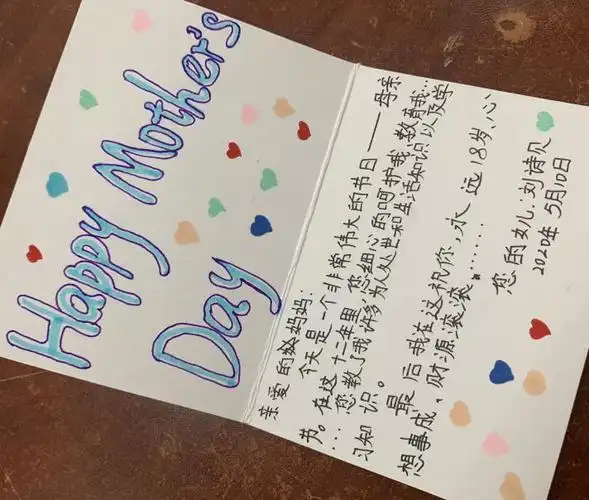 Happy Mother's
Day
亲爱的妈妈:
今天是一个非常伟大的节日——母亲
节。在这十二年里,您细心的呵护我,教育我,
...您教了我许多为人处世和生活知识以及学
习知识。
最后我在这祝你,永远18岁、心
想事成、财源滚滚.......
您的女儿:刘诗贝
2020年5月10日